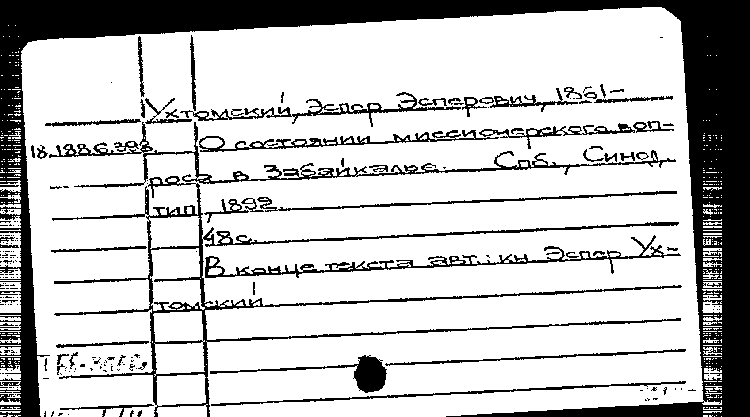 Ухтомский, Эспер Эсперович, 1861-
18.188.6.398. О состоянии миссионерского воп-
роса в Забайкалье. Спб., Синод.
тип., 1892.
48с.
В конце текста авт.: кн. Эспер Ух-
томский